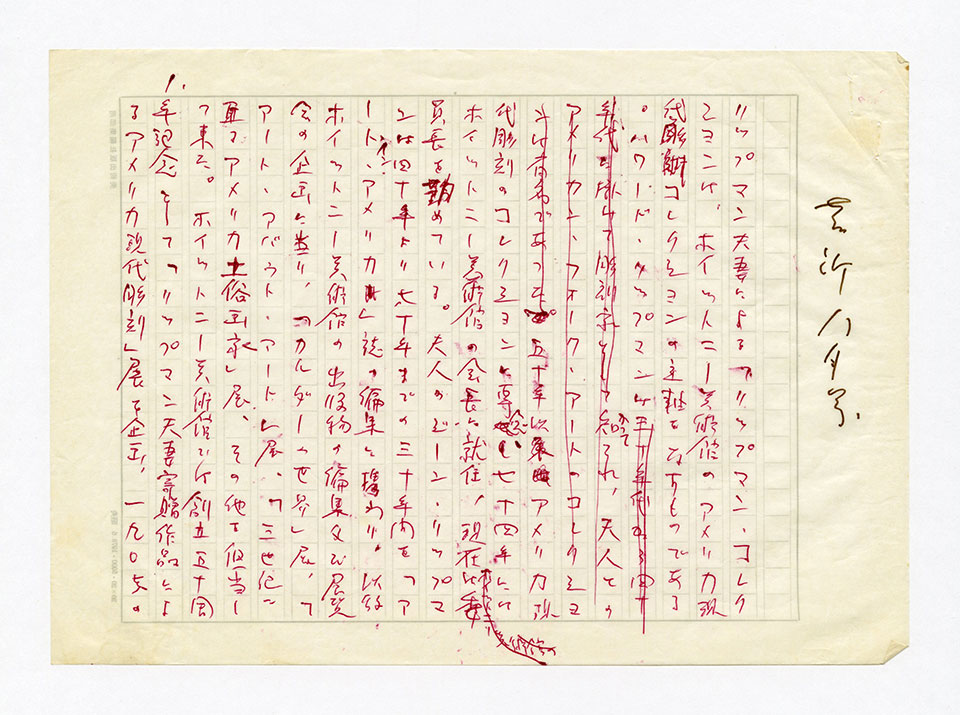 芸術八月号
リップマン夫妻による「リップマン・コレク
ションは、ホイットニー美術館のアメリカ現
代彫刻コレクションの主軸をなすものである
。ハワード・リップマンは五十年代から四十
年代に掛けて彫刻家として知られ、夫人との
アメリカン・フォーク・アートのコレクショ
ンは有名であった 五十年以来 アメリカ現
代彫刻のコレクションに専念し七十四年には
ホイットニー美術館の会長に就任、現在は
美術館の
員長を勤めている。夫人のジーン・リップマ
ンは四十年より七十年までの三十年間を「ア
ート・イン・アメリカ」誌の編集に携わり、以後
ホイットニー美術館の出版物の編集及び展覧
会の企画に当り、「カルダーの世界」展、「
アート・アバウト・アート」展、「三世紀に
亘るアメリカ土俗画家」展、その他を担当し
て来た。ホイットニー美術館では創立五十周
1.
年記念として「リップマン夫妻寄贈作品によ
るアメリカ現代彫刻」展を企画、一九〇五の